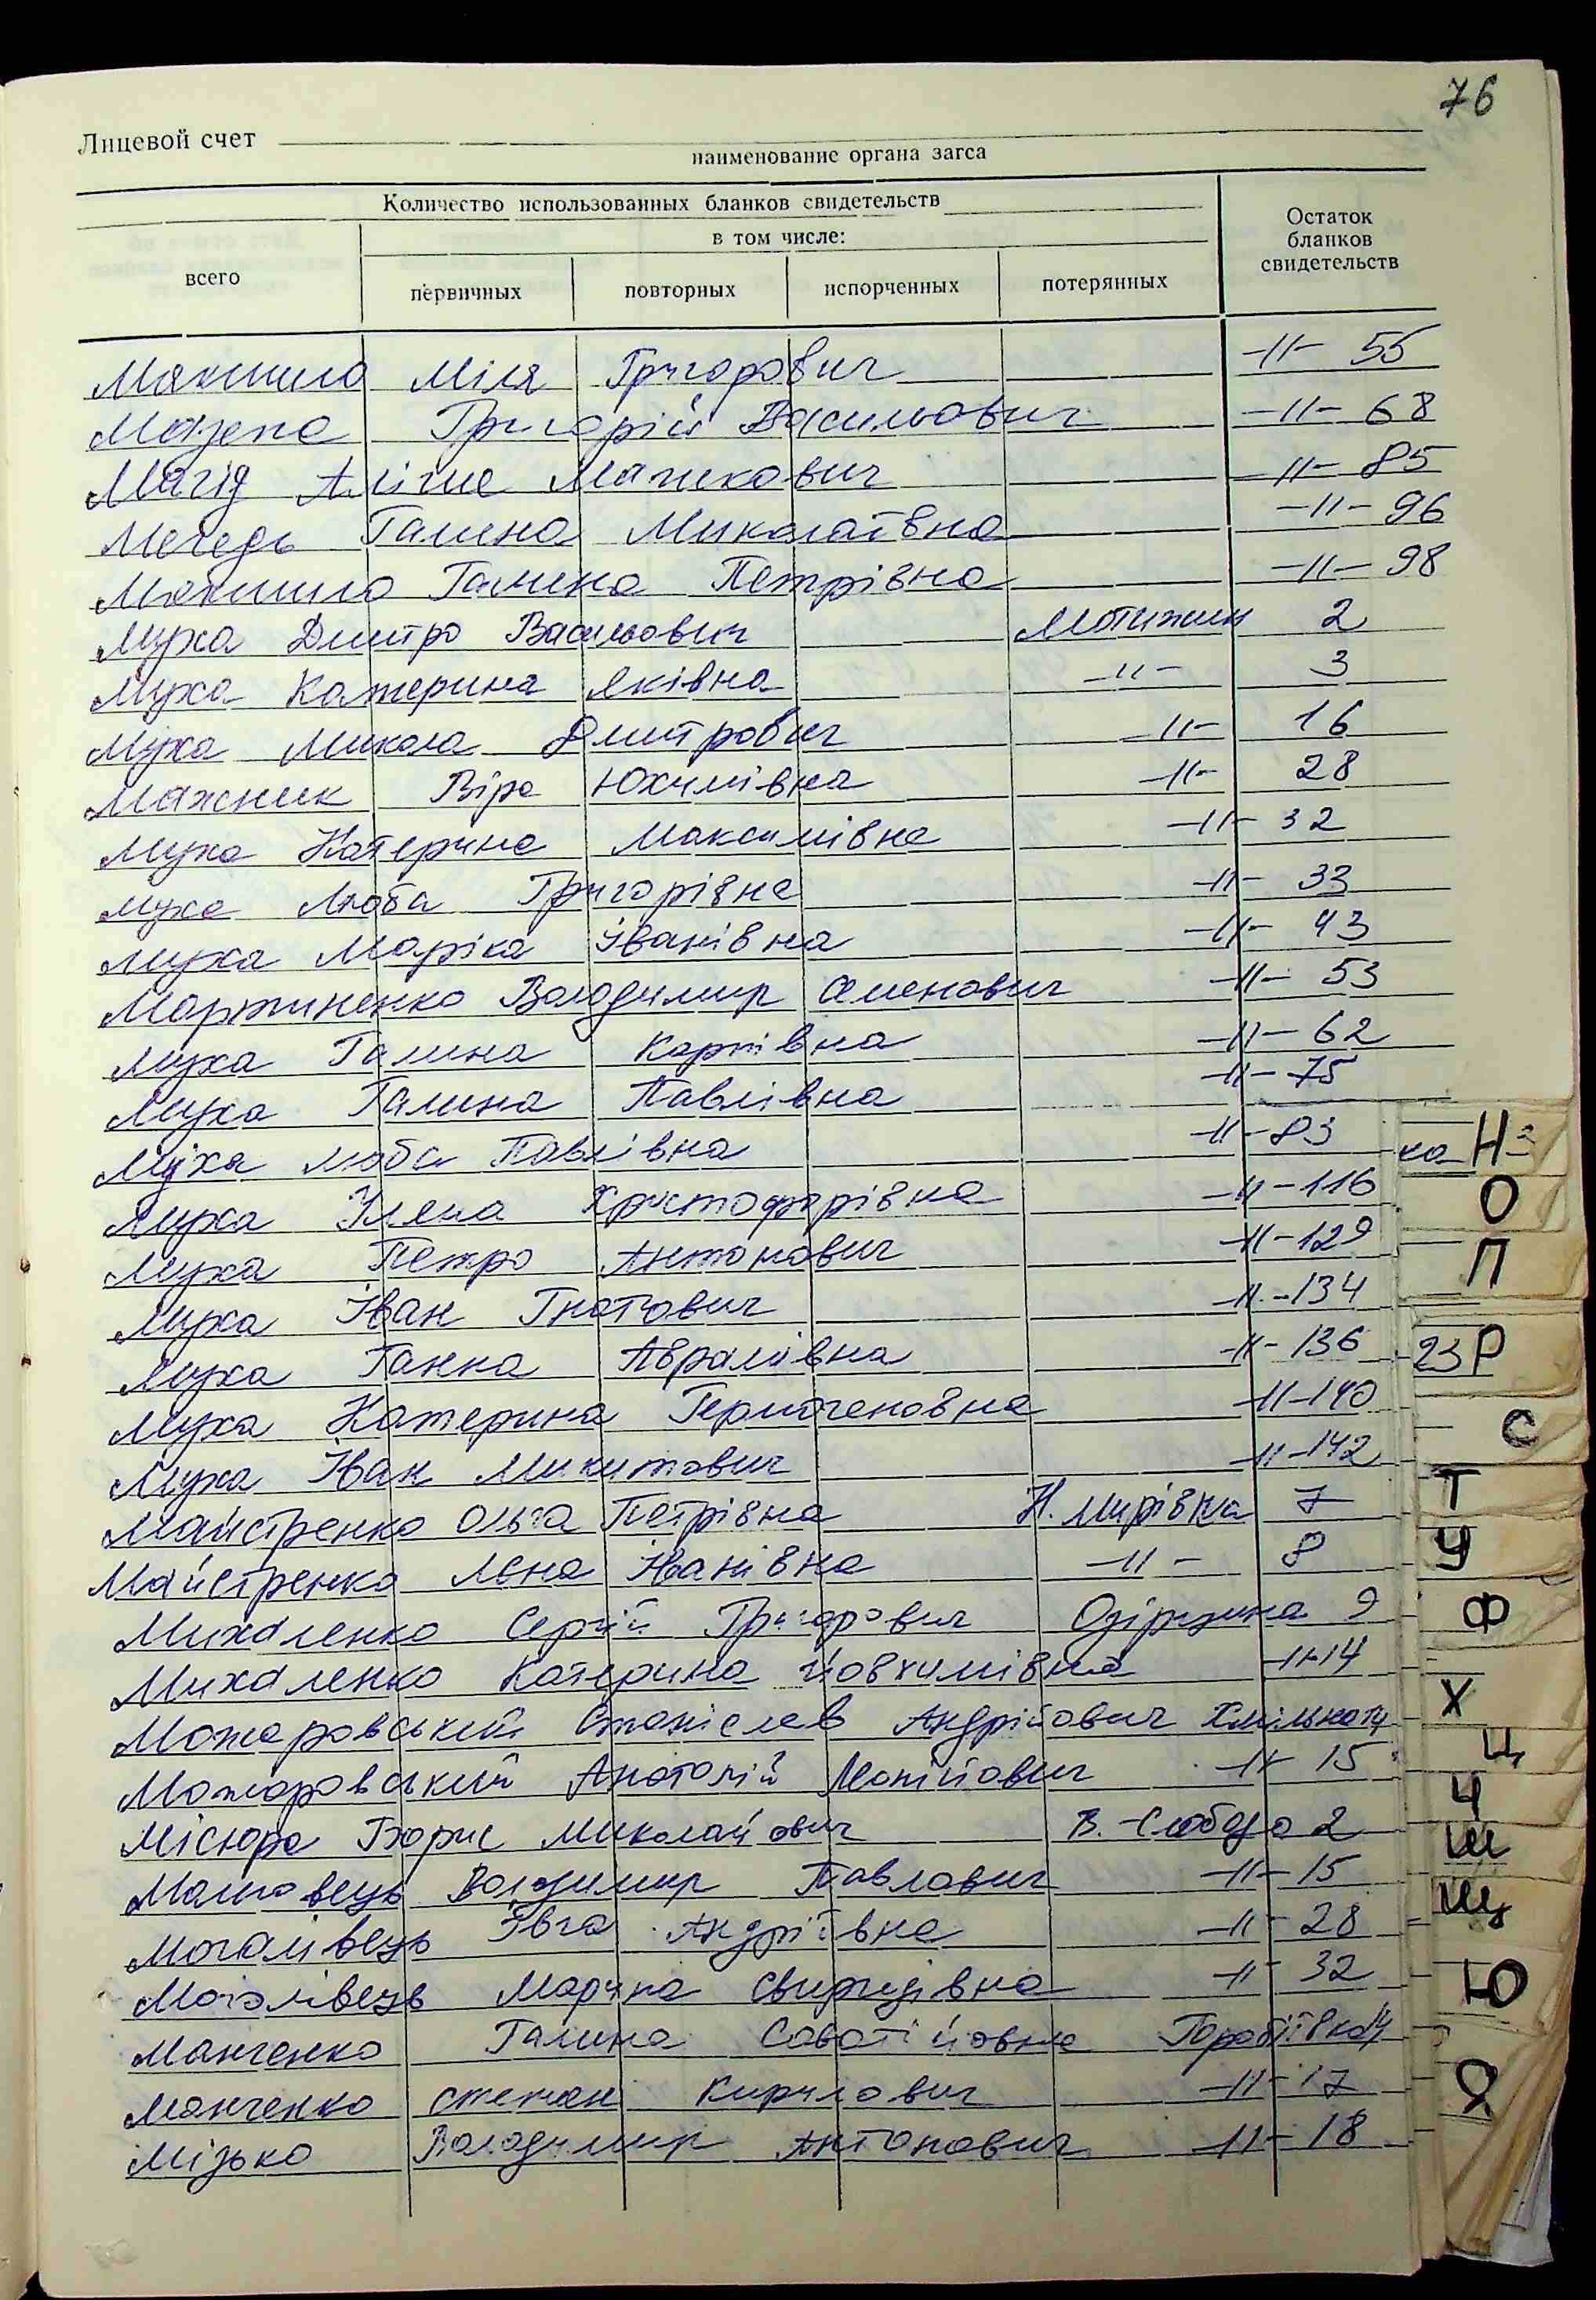 76
Лицевой счет
наименование органа загса
Количество использованных бланков свидетельств
Остаток бланков свидетельств
в том числе:
всего
первичных повторных испорченных потерянных
Міля Григорович -11- 55
Мазепа Григорій Васильович -11- 68
Магід -11- 85
Мечедь Галина Миколаївна -11- 96
Галина Петрівна -11- 98
Муха Дмитро Васильович Мотижин 2
Муха Катерина Яківна -11- 3
Муха Микола Дмитрович -11- 16
Мажник Віра Юхимівна -11- 28
Муха Катерина Максимівна -11- 32
Муха Люба Григорівна -11- 33
Муха Маріка Іванівна -11- 43
Мартиненко Володимир Семенович -11- 53
Муха Галина Карпівна -11- 62
Муха Галина Павлівна -11- 75
Муха Люба Павлівна -11- 83
Муха Уляна Христофорівна -11- 116
Муха Петро Антонович -11- 129
Муха Іван Гнатович -11- 134
Муха Ганна Аврамівна -11- 136
Муха Катерина Гермогеновна -11- 140
Муха Іван Микитович -11- 142
Майстренко Ольга Петрівна Н. Мирівка 7
Майстренко Іванівна -11- 8
Михаленко Сергій Григорович Озірщина 9
Михаленко Катерина Йовхимівна -11- 14
Можаровський Станіслав Андрійович
Можаровський Анатолій -11- 15
Місюра Борис Миколайович В.-Слобода 2
Володимир Павлович -11- 15
Могалівець Івга Андріївна -11- 28
Могалівець Марина Свиридівна -11- 32
Манченко Галина Саватійовна
Манченко Степан Кирилович -11- 17
Мізько Володимир Антонович -11- 18
ка Н
О
П
23 Р
С
Т
У
Ф
Х
Ц
Ч
Ш
Щ
Ю
Я